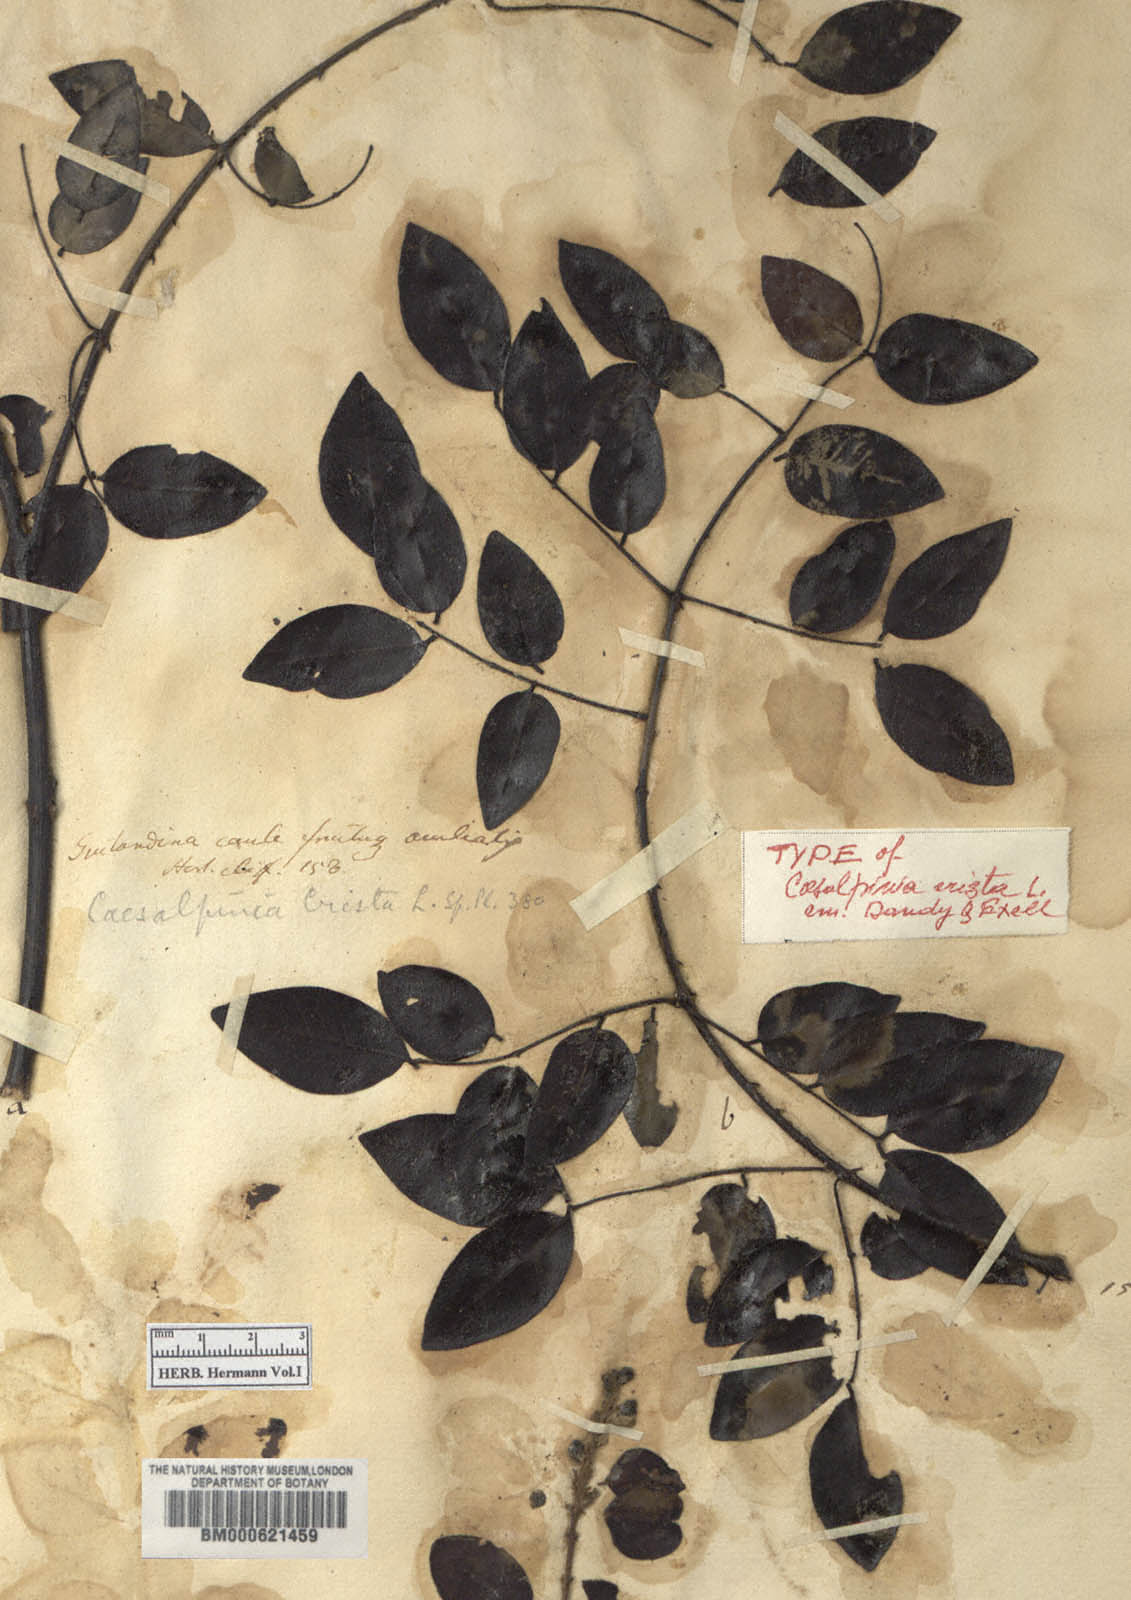 Guilandina caule fructuq aculeatis
Hort. cliff. 158
Caesalpinia Crista L. Sp. Pl. 380
TYPE of
Caesalpinia crista L.
em. Dandy & Exell
a
b
15
mm 1 2 3
HERB. Hermann Vol.I
THE NATURAL HISTORY MUSEUM,LONDON
DEPARTMENT OF BOTANY
BM000621459